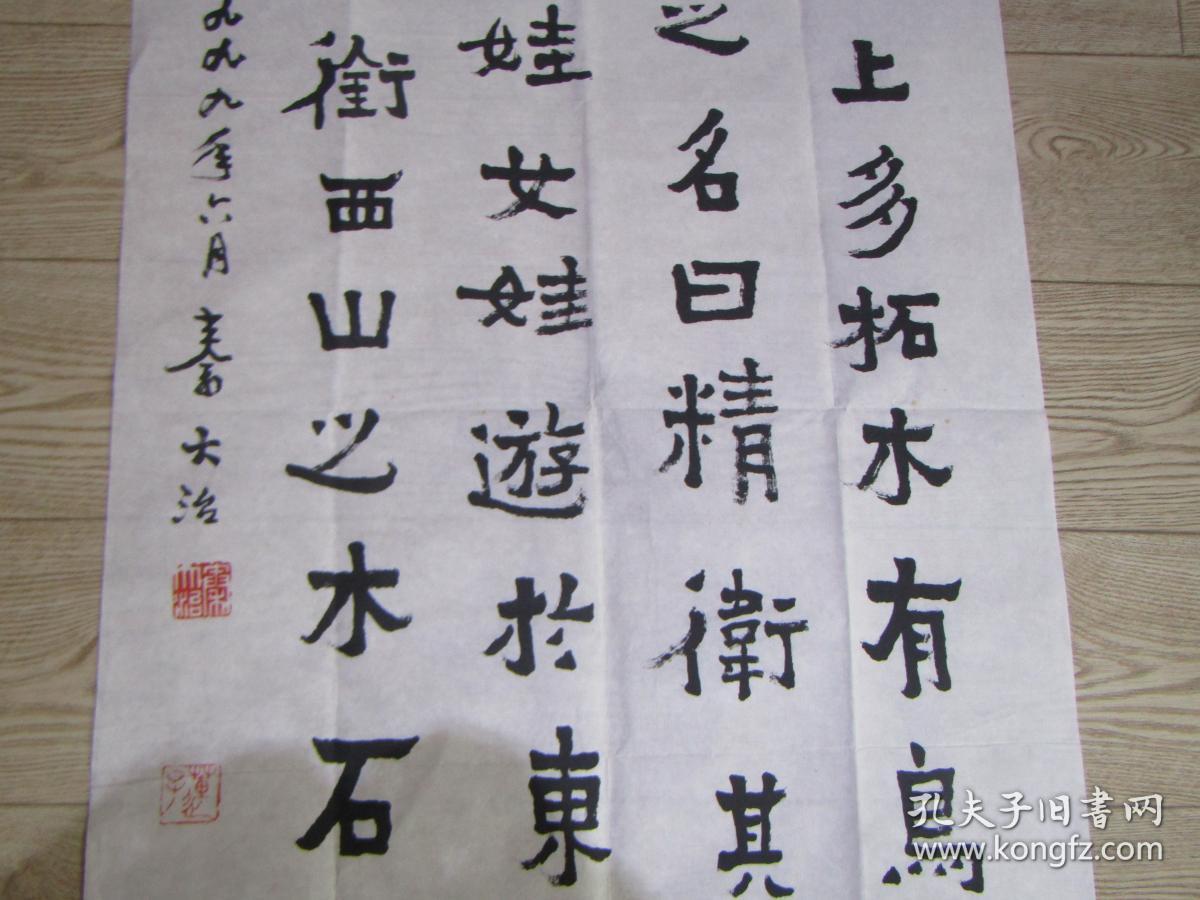 上多柘木有鳥
之名曰精衛其
娃女娃遊於東
銜西山之木石
九九九年六月 秦大治
孔夫子旧书网
www.kongfz.com